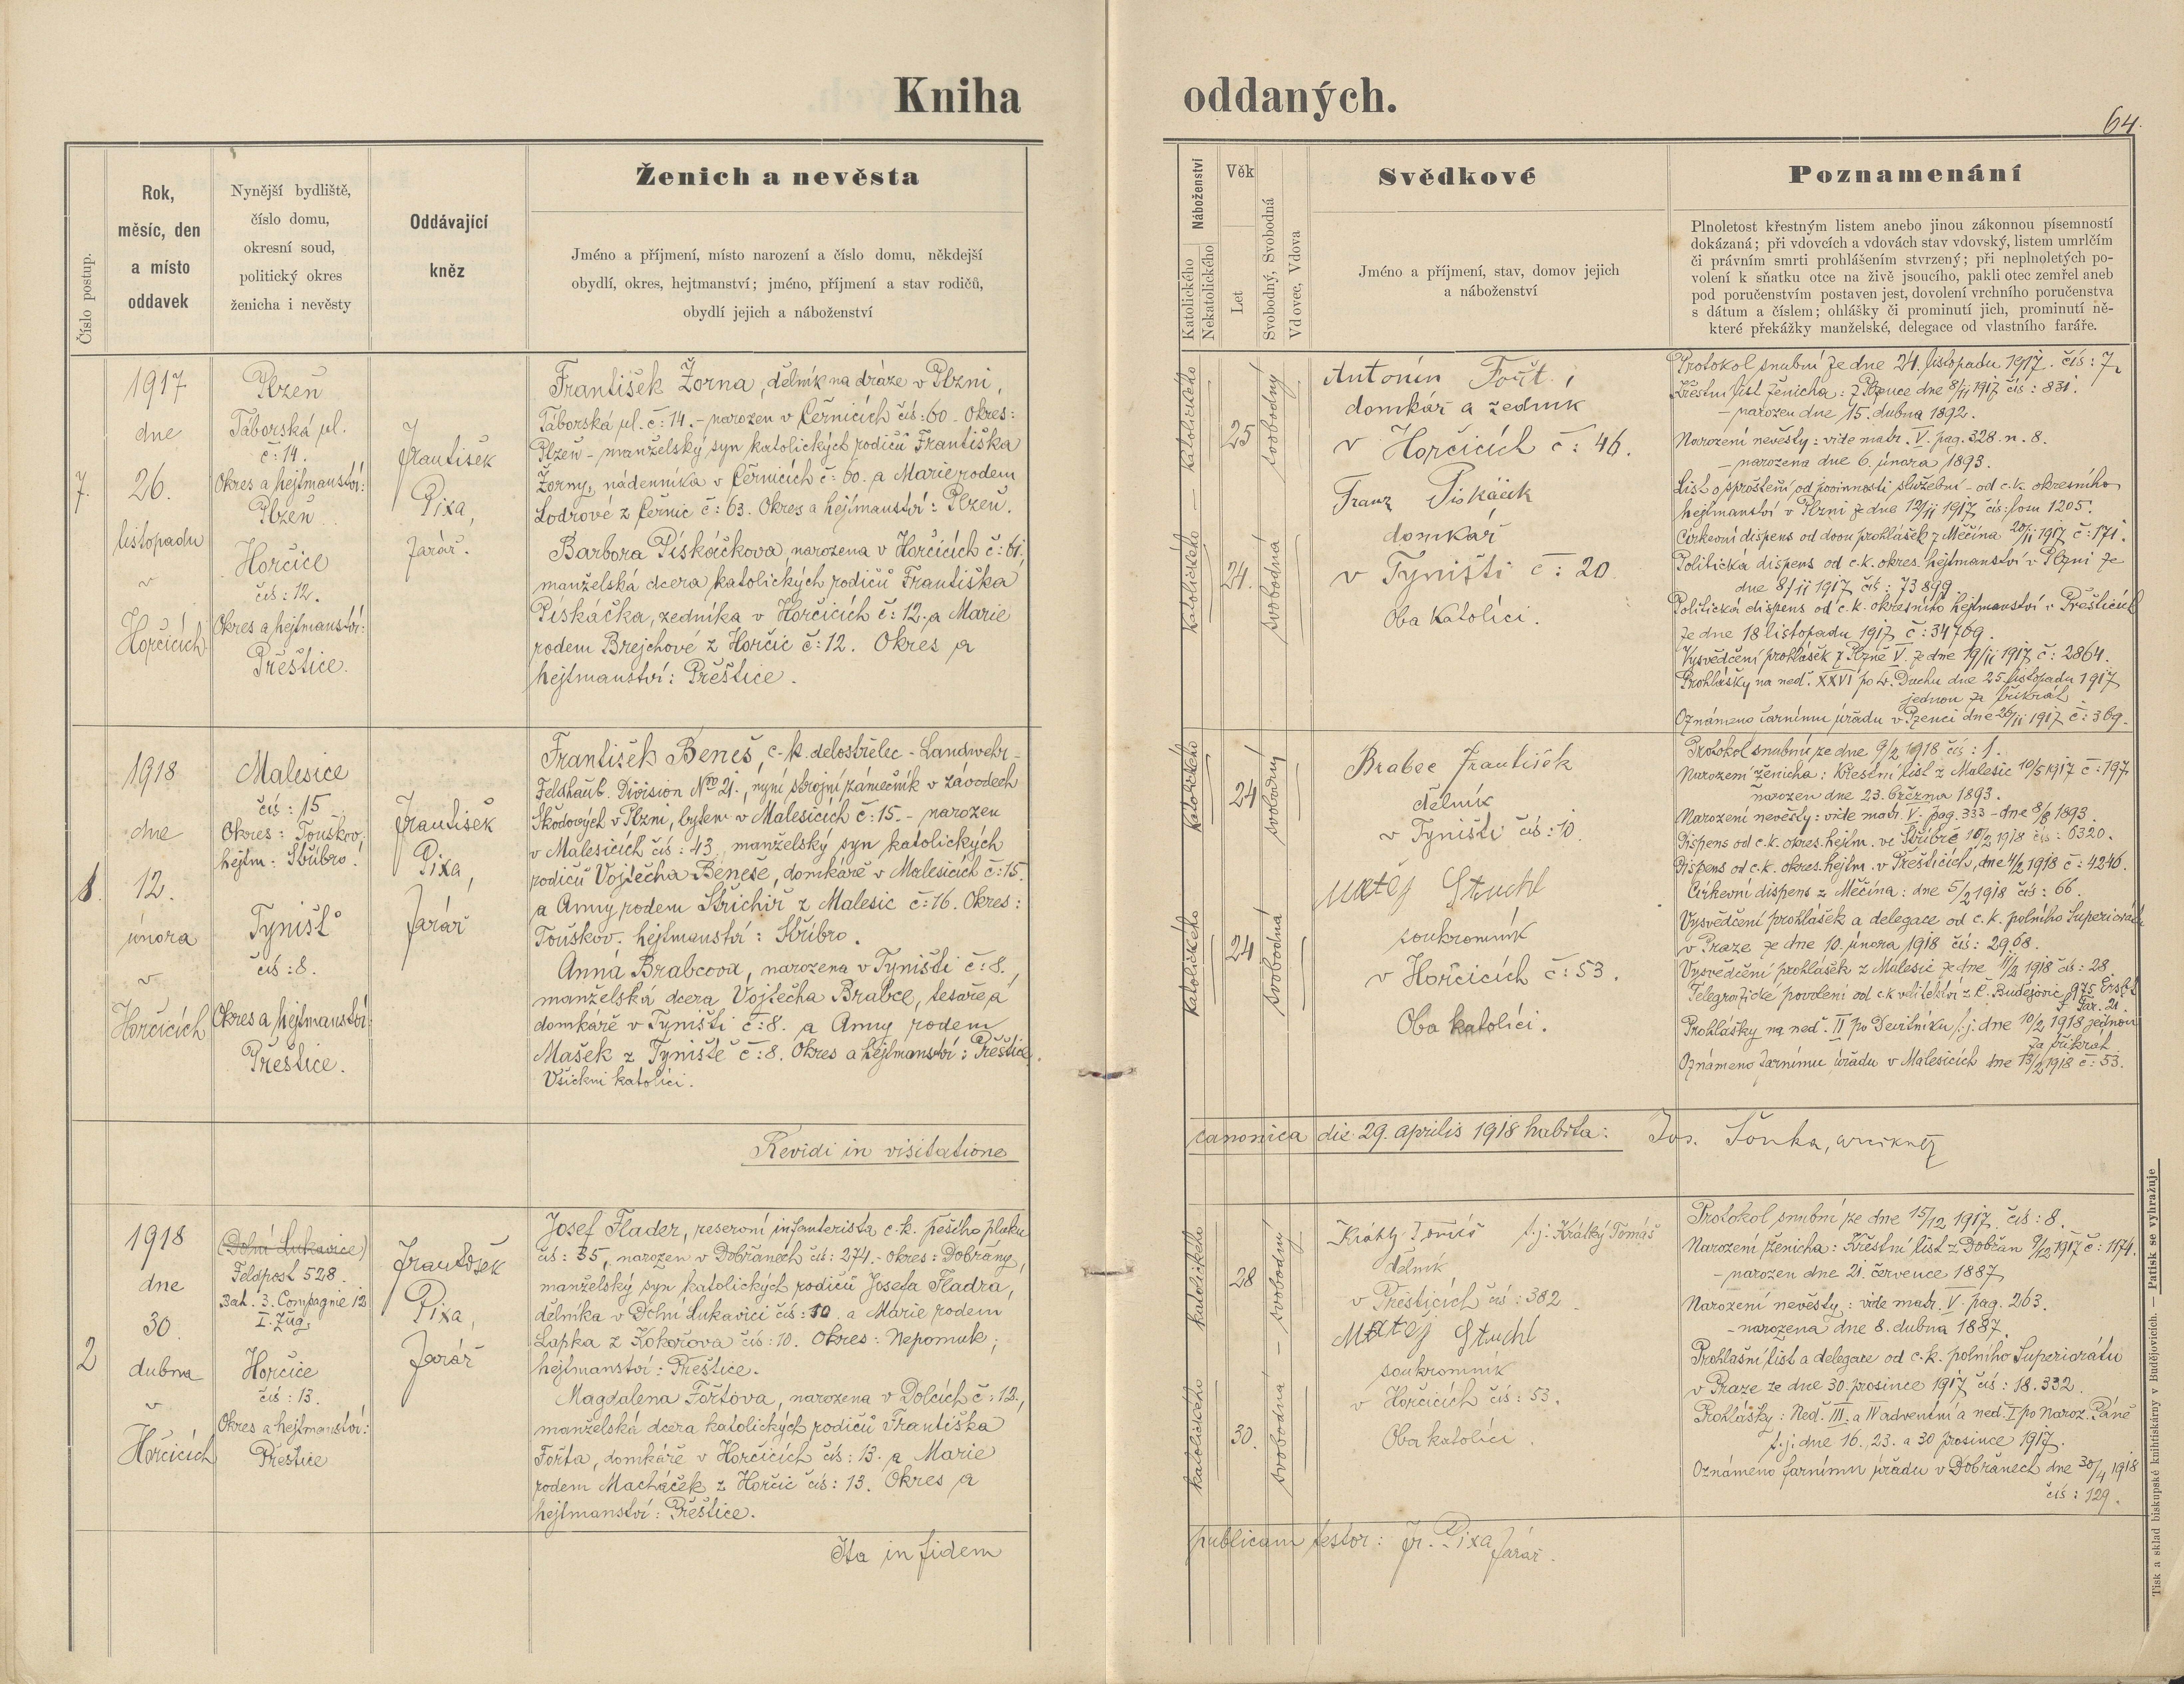 Kniha oddaných.
64.
Číslo postup.
Rok,
měsíc, den
a místo
oddavek
Nynější bydliště,
číslo domu,
okresní soud,
politický okres
ženicha i nevěsty
Oddávající
kněz
Ženich a nevěsta
Jméno a příjmení, místo narození a číslo domu, někdejší
obydlí, okres, hejtmanství; jméno, příjmení a stav rodičů,
obydlí jejich a náboženství
Náboženství
Katolického
Nekatolického
Věk
Let
Svobodný, Svobodná
Vdovec, Vdova
Svědkové
Jméno a příjmení, stav, domov jejich
a náboženství
Poznamenání
Plnoletost křestným listem anebo jinou zákonnou písemností
dokázaná; při vdovcích a vdovách stav vdovský, listem umrlčím
či právním smrti prohlášením stvrzený; při neplnoletých po-
volení k sňatku otce na živě jsoucího, pakli otec zemřel aneb
pod poručenstvím postaven jest, dovolení vrchního poručenstva
s dátum a číslem; ohlášky či prominutí jich, prominutí ně-
které překážky manželské, delegace od vlastního faráře.
7.
1917
dne
26.
listopadu
v
Horčicích
Plzeň
Táborská ul.
č: 14.
Okres a hejtmanství:
Plzeň
Horčice
čís: 12.
Okres a hejtmanství:
Přeštice.
František
Pixa,
farář.
František Žorna, dělník na dráze v Plzni,
Táborská ul. č: 14. - narozen v Černicích čís: 60 - Okres:
Plzeň - manželský syn katolických rodičů Františka
Žorny, nádenníka v Černicích č: 60. a Marie rodem
Lodrové z Černic č: 63. Okres a hejtmanství: Plzeň.
Barbora Pískáčkova, narozena v Horčicích č: 61.
manželská dcera katolických rodičů Františka
Piskáčka, zedníka v Horčicích č: 12. a Marie
rodem Brejchové z Horčic č: 12. Okres a
hejtmanství: Přeštice.
katolického
katolického
25
24.
svobodný
svobodná
Antonín Fořt,
domkář a zedník
v Horčicích č: 46.
Franz Piskáček
domkář
v Týništi č: 20
Oba katolíci.
Protokol snubní ze dne 24. listopadu 1917. čís: 7.
Křestní list ženicha: z Plzence dne 8/11 1917 čís: 831.
- narozen dne 15. dubna 1892.
Narození nevěsty: vide matr. V. pag. 328. n. 8.
- narozena dne 6. února 1893.
List o sproštění od povinnosti služební - od c. k. okresního
hejtmanství v Plzni ze dne 12/11 1917 čís: losu 1205.
Církevní dispens od dvou prohlášek z Měčína 20/11 1917 č: 171.
Politická dispens od c. k. okres. hejtmanství v Plzni ze
dne 8/11 1917 čís: 73899.
Politická dispens od c. k. okresního hejtmanství v Přešticích
ze dne 18 listopadu 1917 č: 34769.
Vysvědčení prohlášek z Plzně V. ze dne 19/11 1917 č: 2864.
Prohlášky na neď. XXVI po sv. Duchu dne 25. listopadu 1917
jednou za třikrát
Oznámeno farnímu úřadu v Pzenci dne 26/11 1917 č: 369.
1.
1918
dne
12.
února
v
Horčicích
Malesice
čís: 15
Okres: Touškov.
hejtm: Stříbro.
Týnišť
čís: 8.
Okres a hejtmanství:
Přeštice.
František
Pixa,
farář
František Beneš, c. k. dělostřelec - Landwehr -
Feldhaub. Division Nro 21., nyní strojní zámečník v závodech
Škodových v Plzni, bytem v Malesicích č: 15. - narozen
v Malesicích čís: 43, manželský syn katolických
rodičů Vojtěcha Beneše, domkáře v Malesicích č: 15.
a Anny rodem Střichiř z Malesic č: 16. Okres:
Touškov. hejtmanství: Stříbro.
Anna Brabcova, narozena v Týništi č: 8.,
manželská dcera Vojtěcha Brabce, tesaře a
domkáře v Týništi č: 8. a Anny rodem
Mašek z Týniště č: 8. Okres a hejtmanství: Přeštice.
Všichni katolíci.
katolického
katolického
24
24
svobodný
svobodná
Brabec František
dělník
v Týništi čís: 10.
Matěj Stuchl
soukromník
v Horčicích č: 53.
Oba katolíci.
Protokol snubní ze dne 9/2 1918 čís: 1.
Narození ženicha: Křestní list z Malesic 10/5 1917 č: 197
narozen dne 23. března 1893.
Narození nevěsty: vide matr. V. pag. 333 - dne 8/8 1893.
Dispens od c. k. okres. hejtm. ve Stříbře 10/2 1918 čís: 6320.
Dispens od c. k. okres. hejtm. v Přešticích, dne 4/2 1918 č: 4246.
Církevní dispens z Měčína: dne 5/2 1918 čís: 66.
Vysvědčení prohlášek a delegace od c. k. polního Superiorátu
v Praze, ze dne 10. února 1918 čís: 2968.
Vysvědčení prohlášek z Malesic ze dne 11/2 1918 čís: 28.
Telegrafické povolení od c. k. velitelství z Č. Budějovic 975
Prohlášky na neď. II po Devítníku t. j. dne 10/2 1918 jednou
za třikrát
Oznámeno farnímu úřadu v Malesicích dne 13/2 1918 č: 53.
Revidi in visitatione canonica die 29. aprilis 1918 habita: Jos. Šonka,
2
1918
dne
30.
dubna
v
Horčicích
(Dolní Lukavice)
Feldpost 528.
Bat. 3. Compagnie 12
I. Zug.
Horčice
čís: 13.
Okres a hejtmanství:
Přeštice
František
Pixa,
farář
Josef Flader, reservní infanterista c. k. pěšího pluku
čís: 35, narozen v Dobřanech čís: 274. - okres: Dobřany,
manželský syn katolických rodičů Josefa Fladra,
dělníka v Dolní Lukavici čís: 10. a Marie rodem
Lapka z Kokořova čís: 10. Okres: Nepomuk;
hejtmanství: Přeštice.
Magdalena Fořtova, narozena v Dolcích č: 12.,
manželská dcera katolických rodičů Františka
Fořta, domkáře v Horčicích čís: 13. a Marie
rodem Macháček z Horčic čís: 13. Okres a
hejtmanství: Přeštice.
katolického
katolického
28
30.
svobodný
svobodná
Krátký Tomáš t. j. Krátký Tomáš
dělník
v Přešticích čís: 382
Matěj Stuchl
soukromník
v Horčicích čís: 53.
Oba katolíci
Protokol snubní ze dne 15/12 1917 čís: 8.
Narození ženicha: Křestní list z Dobřan 9/12 1917 č: 1174.
- narozen dne 21. července 1887
Narození nevěsty: vide matr. V. pag. 263.
- narozena dne 8. dubna 1887.
Prohlašní list a delegace od c. k. polního Superiorátu
v Praze ze dne 30. prosince 1917 čís: 18.332.
Prohlášky: Neď. III. a IV adventní a neď. I po Naroz. Páně
t. j. dne 16., 23. a 30 prosince 1917.
Oznámeno farnímu úřadu v Dobřanech dne 30/4 1918
čís: 129.
Ita in fidem publicam testor: Fr. Pixa, farář.
Tisk a sklad biskupské knihtiskárny v Budějovicích. — Patisk se vyhražuje